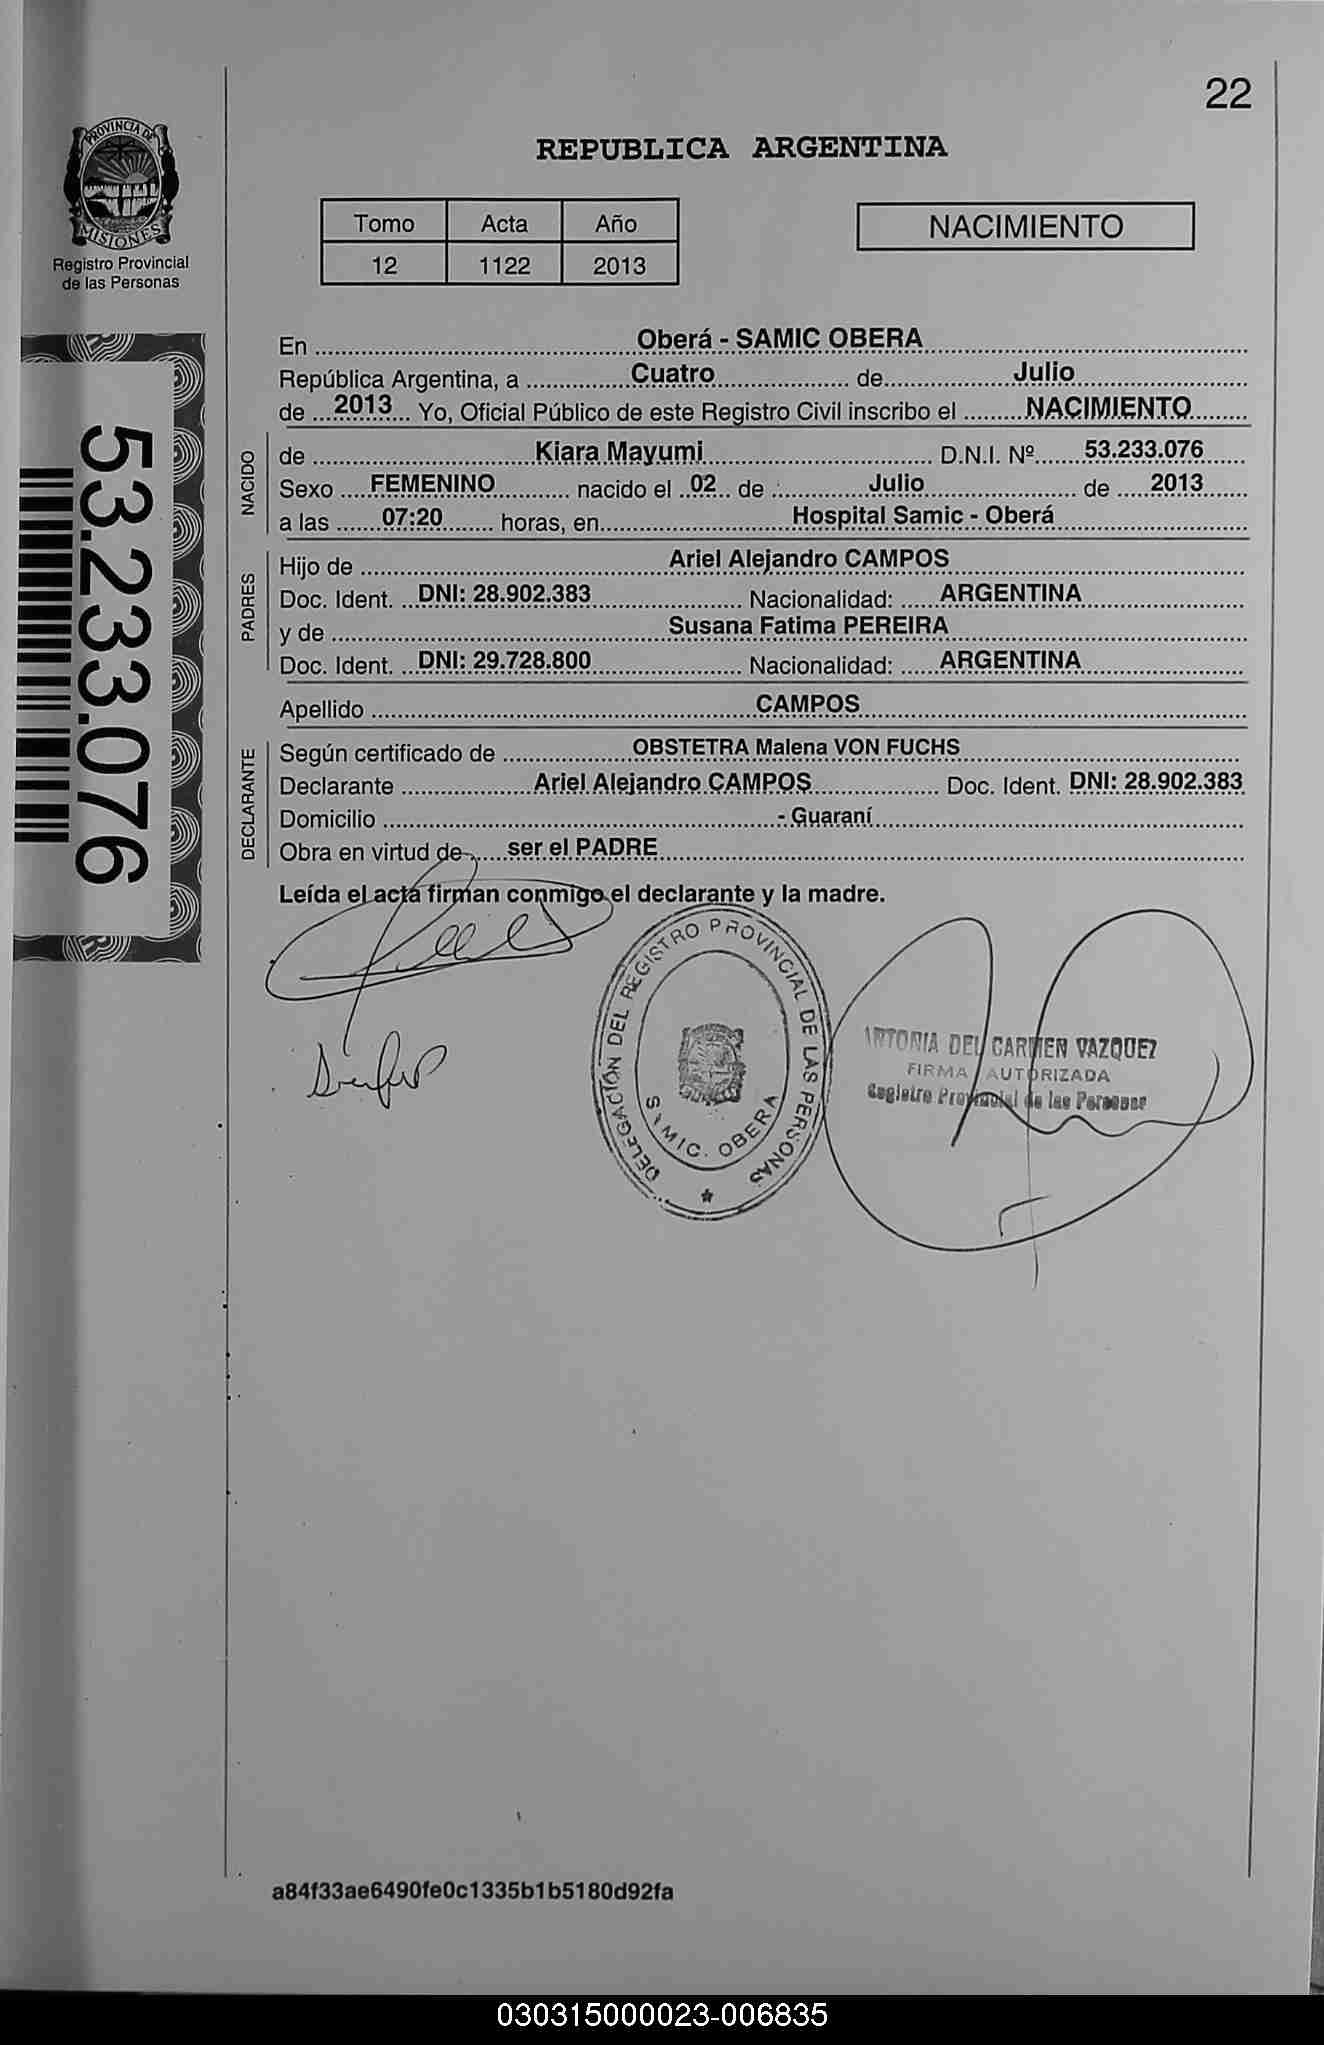 22
PROVINCIA DE
MISIONES
Registro Provincial
de las Personas
REPUBLICA ARGENTINA
Tomo Acta Año
12 1122 2013
NACIMIENTO
53.233.076
En Oberá - SAMIC OBERA
República Argentina, a Cuatro de Julio
de 2013 Yo, Oficial Público de este Registro Civil inscribo el NACIMIENTO
NACIDO
de Kiara Mayumi D.N.I. Nº 53.233.076
Sexo FEMENINO nacido el 02 de Julio de 2013
a las 07:20 horas, en Hospital Samic - Oberá
PADRES
Hijo de Ariel Alejandro CAMPOS
Doc. Ident. DNI: 28.902.383 Nacionalidad: ARGENTINA
y de Susana Fatima PEREIRA
Doc. Ident. DNI: 29.728.800 Nacionalidad: ARGENTINA
Apellido CAMPOS
DECLARANTE
Según certificado de OBSTETRA Malena VON FUCHS
Declarante Ariel Alejandro CAMPOS Doc. Ident. DNI: 28.902.383
Domicilio - Guaraní
Obra en virtud de ser el PADRE
Leída el acta firman conmigo el declarante y la madre.
DELEGACIÓN DEL REGISTRO PROVINCIAL DE LAS PERSONAS
SAMIC. OBERA
ANTONIA DEL CARMEN VAZQUEZ
FIRMA AUTORIZADA
Registro Provincial de las Personas
a84f33ae6490fe0c1335b1b5180d92fa
030315000023-006835